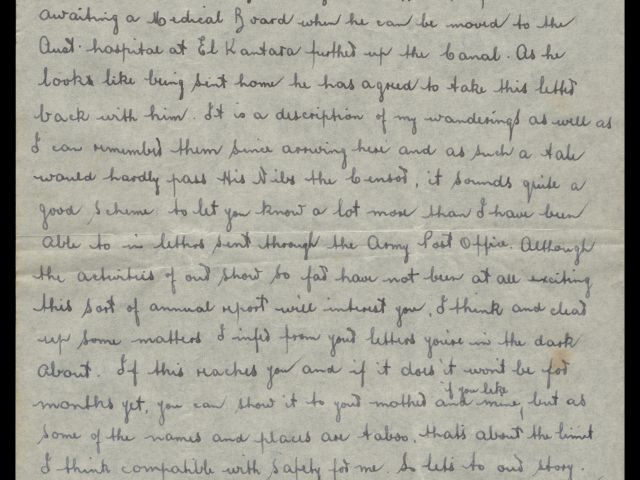 awaiting a Medical Board when he can be moved to the
Aust. hospital at El Kantara further up the Canal. As he
looks like being sent home he has agreed to take this letter
back with him. It is a description of my wanderings as well as
I can remember them since arriving here and as such a tale
would hardly pass His Nibs the Censor, it sounds quite a
good scheme to let you know a lot more than I have been
able to in letters sent through the Army Post Office. Although
the activities of our show so far have not been at all exciting
this sort of annual report will interest you, I think and clear
up some matters I infer from your letters you're in the dark
about. If this reaches you and if it does it won't be for
if you like
months yet, you can show it to your mother and mine, but as
some of the names and places are taboo, thats about the limit
I think compatible with safety for me. So lets to our story.